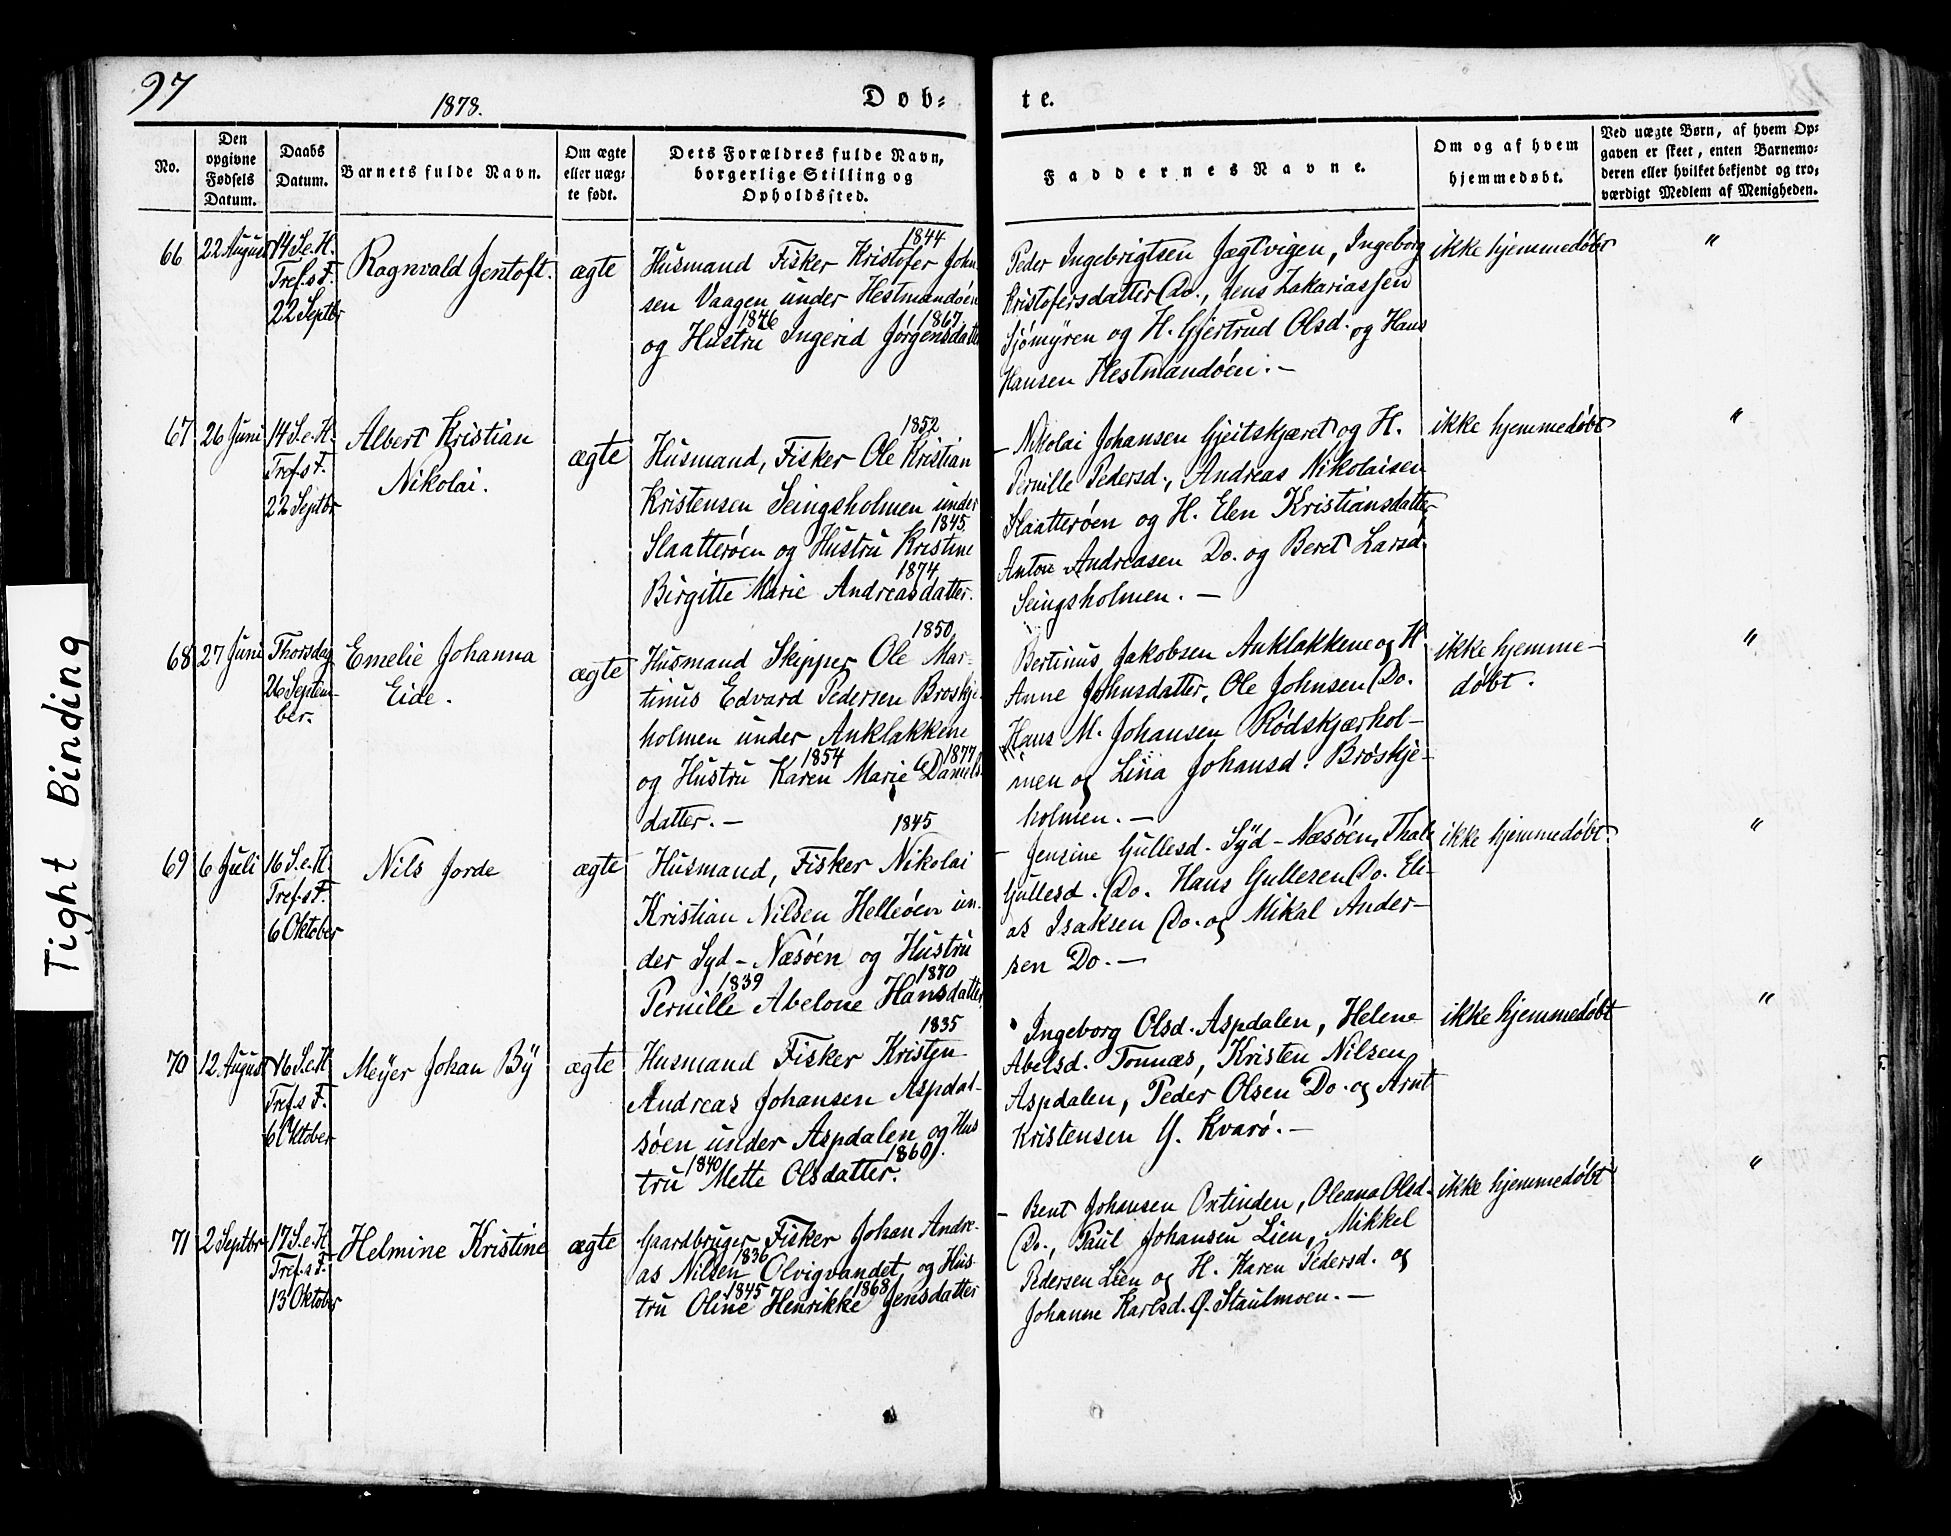 97
1878.
Døb-
te.
No.
Den
opgivne
Fødsels
Datum.
Daabs
Datum.
Barnets fulde Navn.
Om ægte
eller uæg-
te født.
Dets Forældres fulde Navn,
borgerlige Stilling og
Opholdssted.
Faddernes Navne.
Om og af hvem
hjemmedøbt.
Ved uægte Børn, af hvem Op-
gaven er skeet, enten Barnemo-
deren eller hvilket bekjendt og tro-
værdigt Medlem af Menigheden.
66
22 August
14 S. e. H.
Tref. s F.
22 Septbr
Ragnvald Jentoft.
ægte
1844
Husmand Fisker Kristofer John
sen Vaagen under Hestmandøen
1846 1867.
og Hustru Ingerid Jørgensdatter
Peder Ingebrigtsen Jægtvigen, Ingeborg
Kristofersdatter Do., Jens Zakariassen
Sjømyren og H. Gjertrud Olsd. og Hans
Hansen Hestmandøen. –
ikke hjemmedøbt
"
67
26 Juni
14 S. e. H.
Tref. s F.
22 Septbr
Albert Kristian
Nikolai.
ægte
1852
Husmand, Fisker Ole Kristian
Kristensen Seingsholmen under
1845.
Slaatterøen og Hustru Kristine
1874
Birgitte Marie Andreasdatter.
– Nikolai Johansen Gjeitskjæret og H.
Pernille Pedersd., Andreas Nikolaisen
Slaatterøen og H. Elen Kristiansdatter
Anton Andreasen Do. og Beret Larsd.
Seingsholmen. –
ikke hjemmedøbt
"
68
27 Juni
Thorsdag
26 Septem-
ber.
Emelie Johanna
Eide.
ægte
1850
Husmand Skipper Ole Mar-
tinus Edvard Pedersen Broskje-
holmen under Anklakkene
1854 1877
og Hustru Karen Marie Daniels-
datter. –
Bertinus Jakobsen Anklakkene og H.
Anne Johnsdatter, Ole Johnsen Do.
Hans M. Johansen Rødskjærhol-
men og Lina Johansd. Brøskje-
holmen. –
ikke hjemme-
døbt.
"
69
6 Juli
16 S. e. H.
Tref. s F.
6 Oktober
Nils Jorde
ægte
1845
Husmand, Fisker Nikolai
Kristian Nilsen Helleøen un-
der Syd-Næsøen og Hustru
1839 1870
Pernille Abelone Hansdatter
– Jensine Gullesd. Syd-Næsøen, Thale
Gullesd. Do. Hans Gullesen Do. Eli-
as Isaksen Do. og Mikal Ander-
sen Do. –
ikke hjemmedøbt.
"
70
12 August
16 S. e. H.
Tref. s F.
6 Oktober
Meÿer Johan Bÿ
ægte
1835
Husmand Fisker Kristen
Andreas Johansen Aspdal-
søen under Aspdalen og Hus
1840 1860
tru Mette Olsdatter.
Ingeborg Olsd. Aspdalen, Helene
Abelsd. Tonnæs, Kristen Nilsen
Aspdalen, Peder Olsen Do. og Arnt
Kristensen Y. Kvarø. –
ikke hjemmedøbt
"
71
2 Septbr
17 S. e. H.
Tref. s F.
13 Oktober
Helmine Kristine
ægte
Gaardbruger Fisker Johan Andre-
1836
as Nilsen Olvigvandet og Hus-
1845 1868
tru Oline Henrikke Jensdatter
– Bent Johansen Oxtinden, Oleana Olsd.
Do., Paul Johansen Lien, Mikkel
Pedersen Lien og H. Karen Pedersd. og
Johanne Karlsd. Staulmoen. –
ikke hjemmedøbt
"
Tight Binding